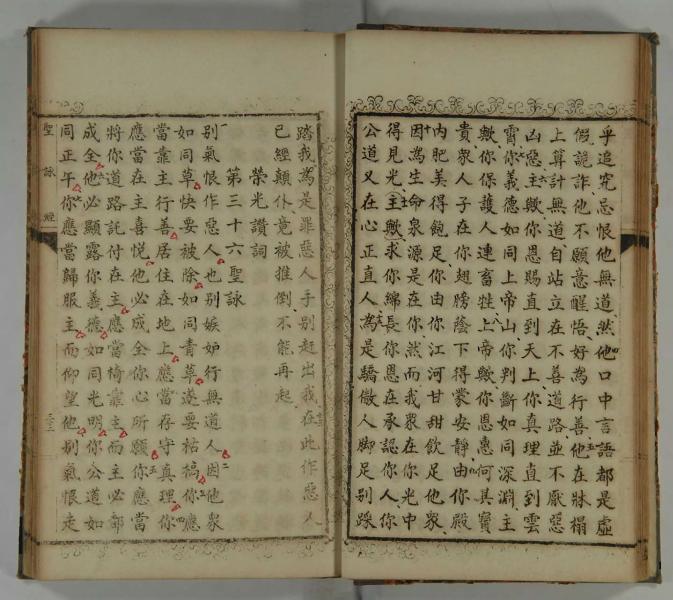 乎追究忌恨他無道然他口中言語都是虛
假詭詐他不願意醒悟好為行善他在牀榻
上算計無道自站立在不善道路並不厭惡
凶惡主歟你恩賜直到天上你真理直到雲
霄你義德如同上帝山你判斷如同深淵主
歟你保護人連畜牲上帝歟你恩惠何其寳
貴衆人子在你翅膀蔭下得蒙安靜由你殿
内肥美得飽足你由你江河甘甜飲足他衆
因為生命泉源是在你然而我衆在你光中
得見光主歟求你綿長你恩在承認你人你
公道又在心正直人為是驕傲人脚足别踩
踏我為是罪惡人手别趕出我在此作惡人
已經顛仆竟被推倒不能再起
榮光讚詞
第三十六聖詠
别氣恨作惡人也别嫉妒行無道人因他衆
如同草快要被除如同青草遂要枯稿你應
當靠主行善居住在地上應當存守真理你
應當在主喜悦他必成全你心所願你應當
將你道路託付在主應當倚靠主而主必都
成全他必顯露你義德如同光明你公道如
同正午你應當歸服主而仰望他别氣恨走
聖詠經
三十二